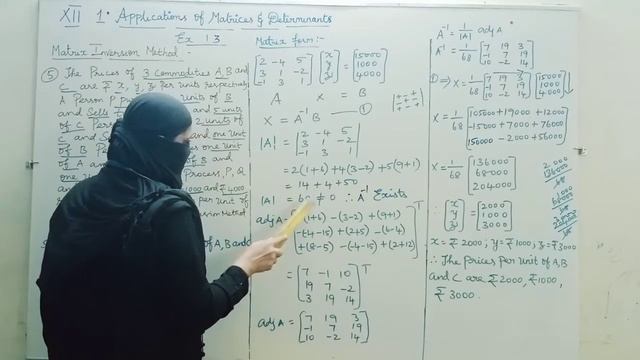 XII 1. Applications of Matrices & Determinants
Ex 1.3
Matrix Inversion Method:-
⑤ The Prices of 3 Commodities A, B and
C are ₹ x, y, z Per units respectively
A Person P
Units of B
and Sells
and 5 units
of C Per
2 units of
C and
and one Unit
of B Per
of A and
one Uni
Process, P, Q
and ₹ 4000
Method
of A, B and C
Matrix form:-
[2 -4 5] [x] [15000]
[3 1 -2] [y] = [1000]
[-1 3 1] [z] [4000]
A X = B
X = A⁻¹ B ①
|+ - +|
|- + -|
|+ - +|
|2 -4 5|
|A| = |3 1 -2|
|-1 3 1|
= 2(1+6)+4(3-2)+5(9+1)
= 14 + 4 + 50
|A| = 68 ≠ 0 ∴ A⁻¹ Exists
adj A = [(1+6) -(3-2) +(9+1)] T
[-(-4-15) +(2+5) -(6-4)]
[+(8-5) -(-4-15) +(2+12)]
= [7 -1 10] T
[19 7 -2]
[3 19 14]
adj A = [7 19 3]
[-1 7 19]
[10 -2 14]
A⁻¹ = 1/|A| adj A
A⁻¹ = 1/68 [7 19 3]
[-1 7 19]
[10 -2 14]
① ⇒ X = 1/68 [7 19 3] [15000]
[-1 7 19] [1000]
[10 -2 14] [4000]
X = 1/68 [105000+19000+12000]
[-15000+7000+76000]
[150000-2000+56000]
X = 1/68 [136000]
[68000]
[204000]
[x] [2000]
∴ [y] = [1000]
[z] [3000]
x = ₹ 2000, y = ₹ 1000, z = ₹ 3000
∴ The Prices Per Unit of A, B
and C are ₹ 2000, ₹ 1000,
₹ 3000.